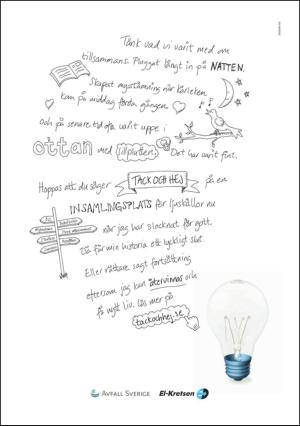 Tänk vad vi varit med om
tillsammans. Pluggat långt in på NATTEN.
Skapat mysstämning när kärleken
kom på middag första gången.
Och på senare tid ofta varit uppe i
ottan med lillplutten. Det har varit fint.
Hoppas att du säger TACK OCH HEJ på en
INSAMLINGSPLATS för ljuskällor nu
när jag har slocknat för gott.
Då får min historia ett lyckligt slut.
Eller rättare sagt fortsättning
eftersom jag kan återvinnas och
få nytt liv. Läs mer på
tackochhej.se.
AVFALL SVERIGE
El-Kretsen